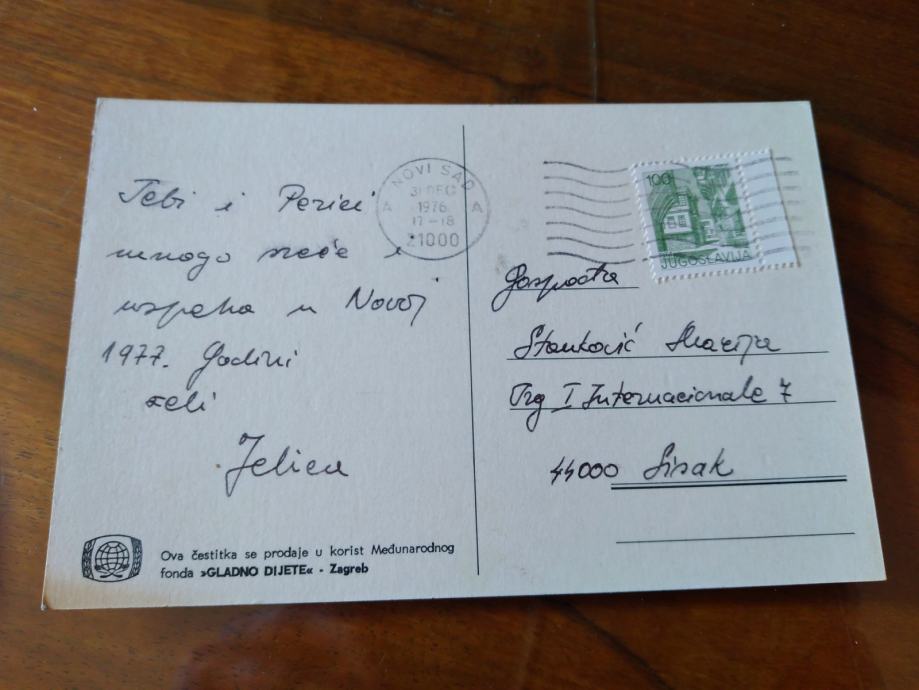 Tebi i Perici
mnogo sreće i
uspeha u Novoj
1977. Godini
želi
Jelica
Ova čestitka se prodaje u korist Međunarodnog
fonda »GLADNO DIJETE« - Zagreb
NOVI SAD
A A
31 DEC
1976
17-18
21000
100
JUGOSLAVIJA
Stanković Marija
Trg I Internacionale 7
44000 Sisak